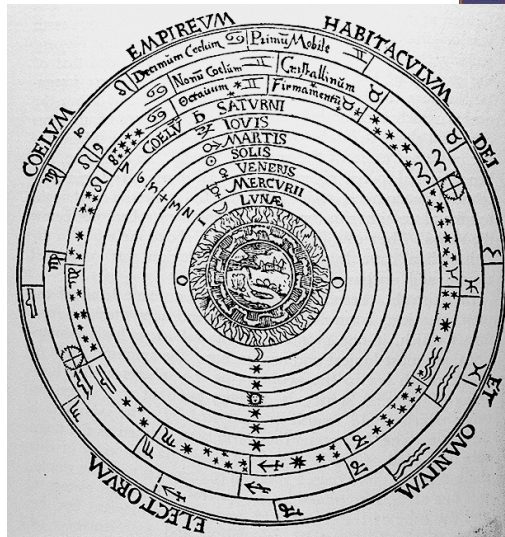 COELVM EMPIREVM HABITACVLVM DEI ET OMNIVM ELECTORVM
Decimum Coelum Primū Mobile
Nonū Coelum Cristallinum
Octauum Firmamentū
COELV̄ SATVRNI
IOVIS
MARTIS
SOLIS
VENERIS
MERCVRII
LVNÆ
7 6 5 4 3 2 1